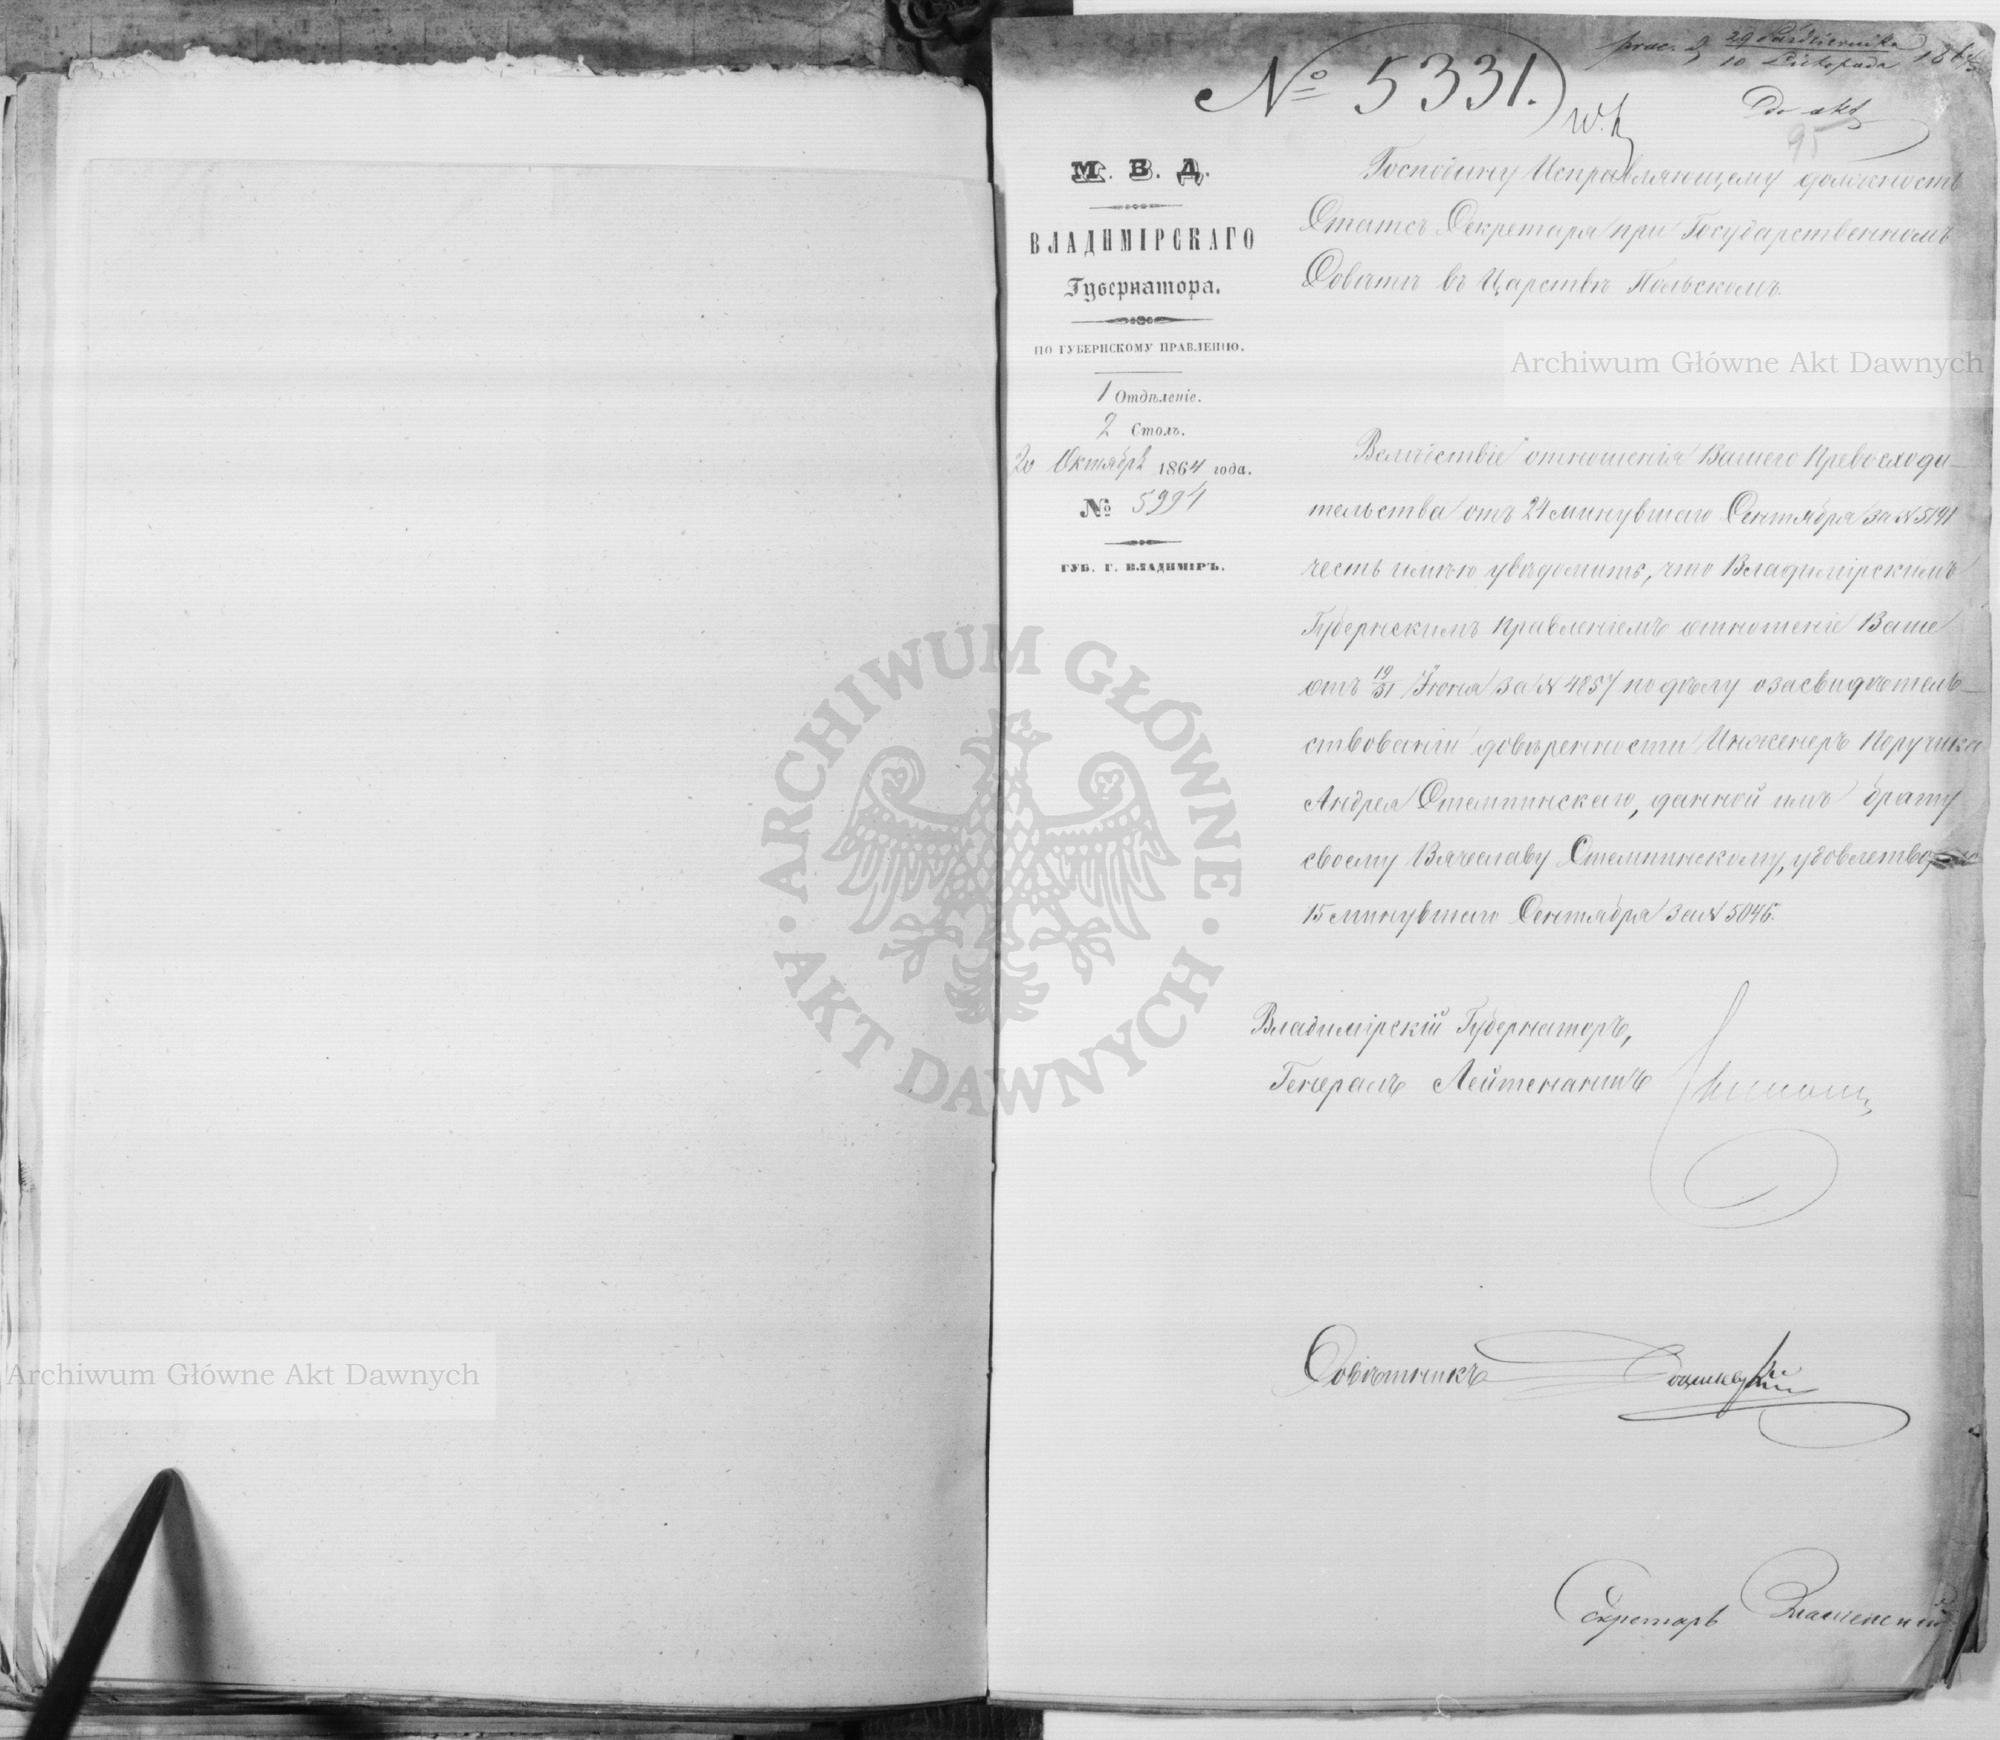 29 Października
prac. d. 10 Listopada 1864
№ 5331.
Do akt
95
М. В. Д.
ВЛАДИМІРСКАГО
Губернатора.
ПО ГУБЕРНСКОМУ ПРАВЛЕНІЮ.
1 Отдѣленіе.
2 Столъ.
20 Октября 1864 года.
№ 5994
ГУБ. Г. ВЛАДИМІРЪ.
Господину Исправляющему должность
Статсъ Секретаря при Государственномъ
Совѣтѣ въ Царствѣ Польскомъ.
Archiwum Główne Akt Dawnych
Вслѣдствіе отношенія Вашего Превосходи-
тельства отъ 24 минувшаго Сентября за № 5191
честь имѣю увѣдомить, что Владимірскимъ
Губернскимъ Правленіемъ отношеніе Ваше
отъ 19/31 Іюня за № 4857 по дѣлу о засвидѣтель-
ствованіи довѣренности Инженеръ Поручика
Андрея Стемпинскаго, данной имъ брату
своему Вячеславу Стемпинскому, удовлетворено
15 минувшаго Сентября за № 5046.
Владимірскій Губернаторъ,
Генералъ Лейтенантъ
Совѣтникъ
Секретарь
ARCHIWUM GŁÓWNE · AKT DAWNYCH ·
Archiwum Główne Akt Dawnych